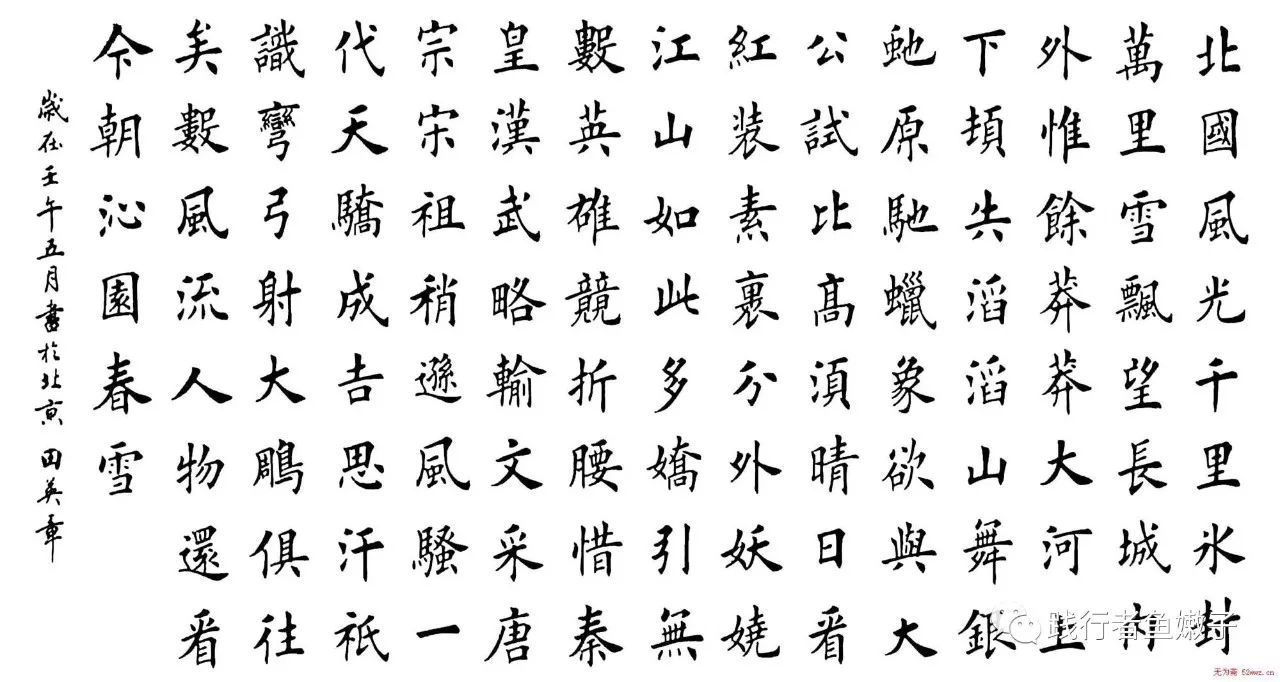 北國風光千里氷封
萬里雪飄望長城内
外惟餘莽莽大河上
下頓失滔滔山舞銀
虵原馳蠟象欲與大
公試比髙須晴日看
紅装素裹分外妖嬈
江山如此多嬌引無
數英雄競折腰惜秦
皇漢武略輸文采唐
宗宋祖稍遜風騷一
代天驕成吉思汗祇
識彎弓射大鵰俱往
矣數風流人物還看
今朝沁園春雪
歲在壬午五月書於北京 田英章
践行者鱼嫩子
无为斋 52wwz.cn